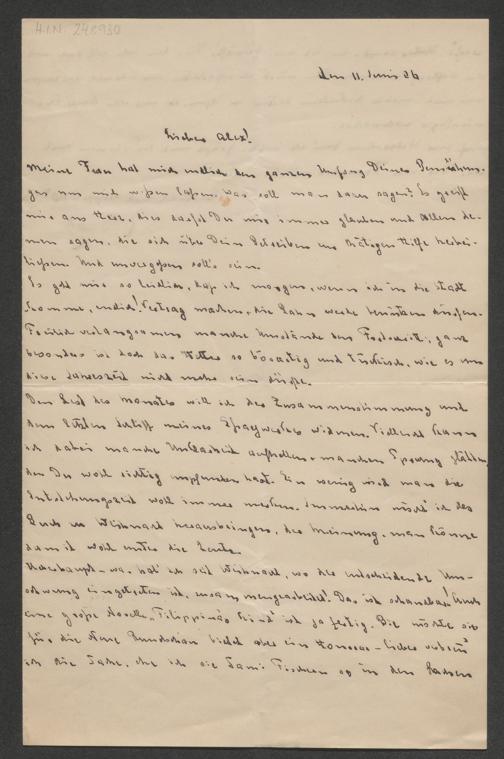 H.I.N. 248930
den 11. Juni 26
Lieber Alex!
Meine Frau hat mich endlich den ganzen Umfang Deiner Bemühun-
gen um mich wissen lassen. Was soll man dazu sagen? Es greift
mir ans Herz, dies darfst Du mir immer glauben und Allen de-
nen sagen, die sich über Dein Betreiben zur tätigen Hilfe herbei-
ließen. Und unvergessen soll's sein.
Es geht mir so leidlich, daß ich morgen, wenn ich in die Stadt
komme, endlich! Vertrag machen, die Bahn werde benützen dürfen.
Freilich verlangsamen manche Umstände den Fortschritt, ganz
besonders ist doch das Wetter so bösartig und tückisch, wie es um
diese Jahreszeit nicht mehr sein dürfte.
Den Rest des Monates will ich der Zusammenstimmung und
dem letzten Schliff meines widmen. Vielleicht kann
ich dabei manche Unklarheit aufhellen, manchen Sprung glätten
den Du wohl richtig empfunden hast. Ein wenig wird man die
Entstehungszeit wohl immer merken. Immerhin möcht' ich das
Buch zu Weihnacht herausbringen, der Meinung, man könne
damit wohl unter die Leute.
Überhaupt- was hab' ich seit Weihnacht, wo der entscheidende Um-
schwung eingetreten ist, zusammengearbeitet! Das ist schauderbar! Auch
eine große Novelle „Filippinas Kind" ist ja fertig. Die möchte sie
für die Neue Rundschau bietet aber ein Honorar - lieber
ich die Sache, ehe ich sie Sami Fischern so in den Rachen